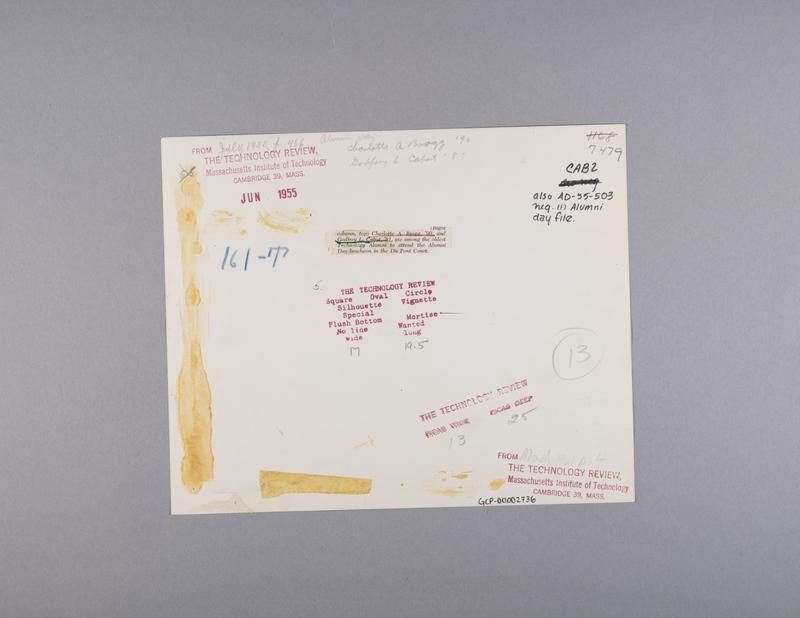 FROM July 1955 p. 466
THE TECHNOLOGY REVIEW,
Massachusetts Institute of Technology
CAMBRIDGE 39, MASS.
JUN 1955
Charlotte A Bragg '90
Godfrey L Cabot '81
1168
7479
CAB2
also AD-55-503
neg. 111 Alumni
day file.
161-
column, top) Charlotte A. Bragg, '90, and
Godfrey L. Cabot, '81, are among the oldest
Technology Alumni to attend the Alumni
Day luncheon in the Du Pont Court.
5.
THE TECHNOLOGY REVIEW
Square Oval Circle
Silhouette Vignette
Special
Flush Bottom Mortise
No line Wanted
wide long
17 19.5
13
THE TECHNOLOGY REVIEW
PICAS WIDE PICAS DEEP
13 25
FROM
THE TECHNOLOGY REVIEW,
Massachusetts Institute of Technology
CAMBRIDGE 39, MASS.
GCP-00002736